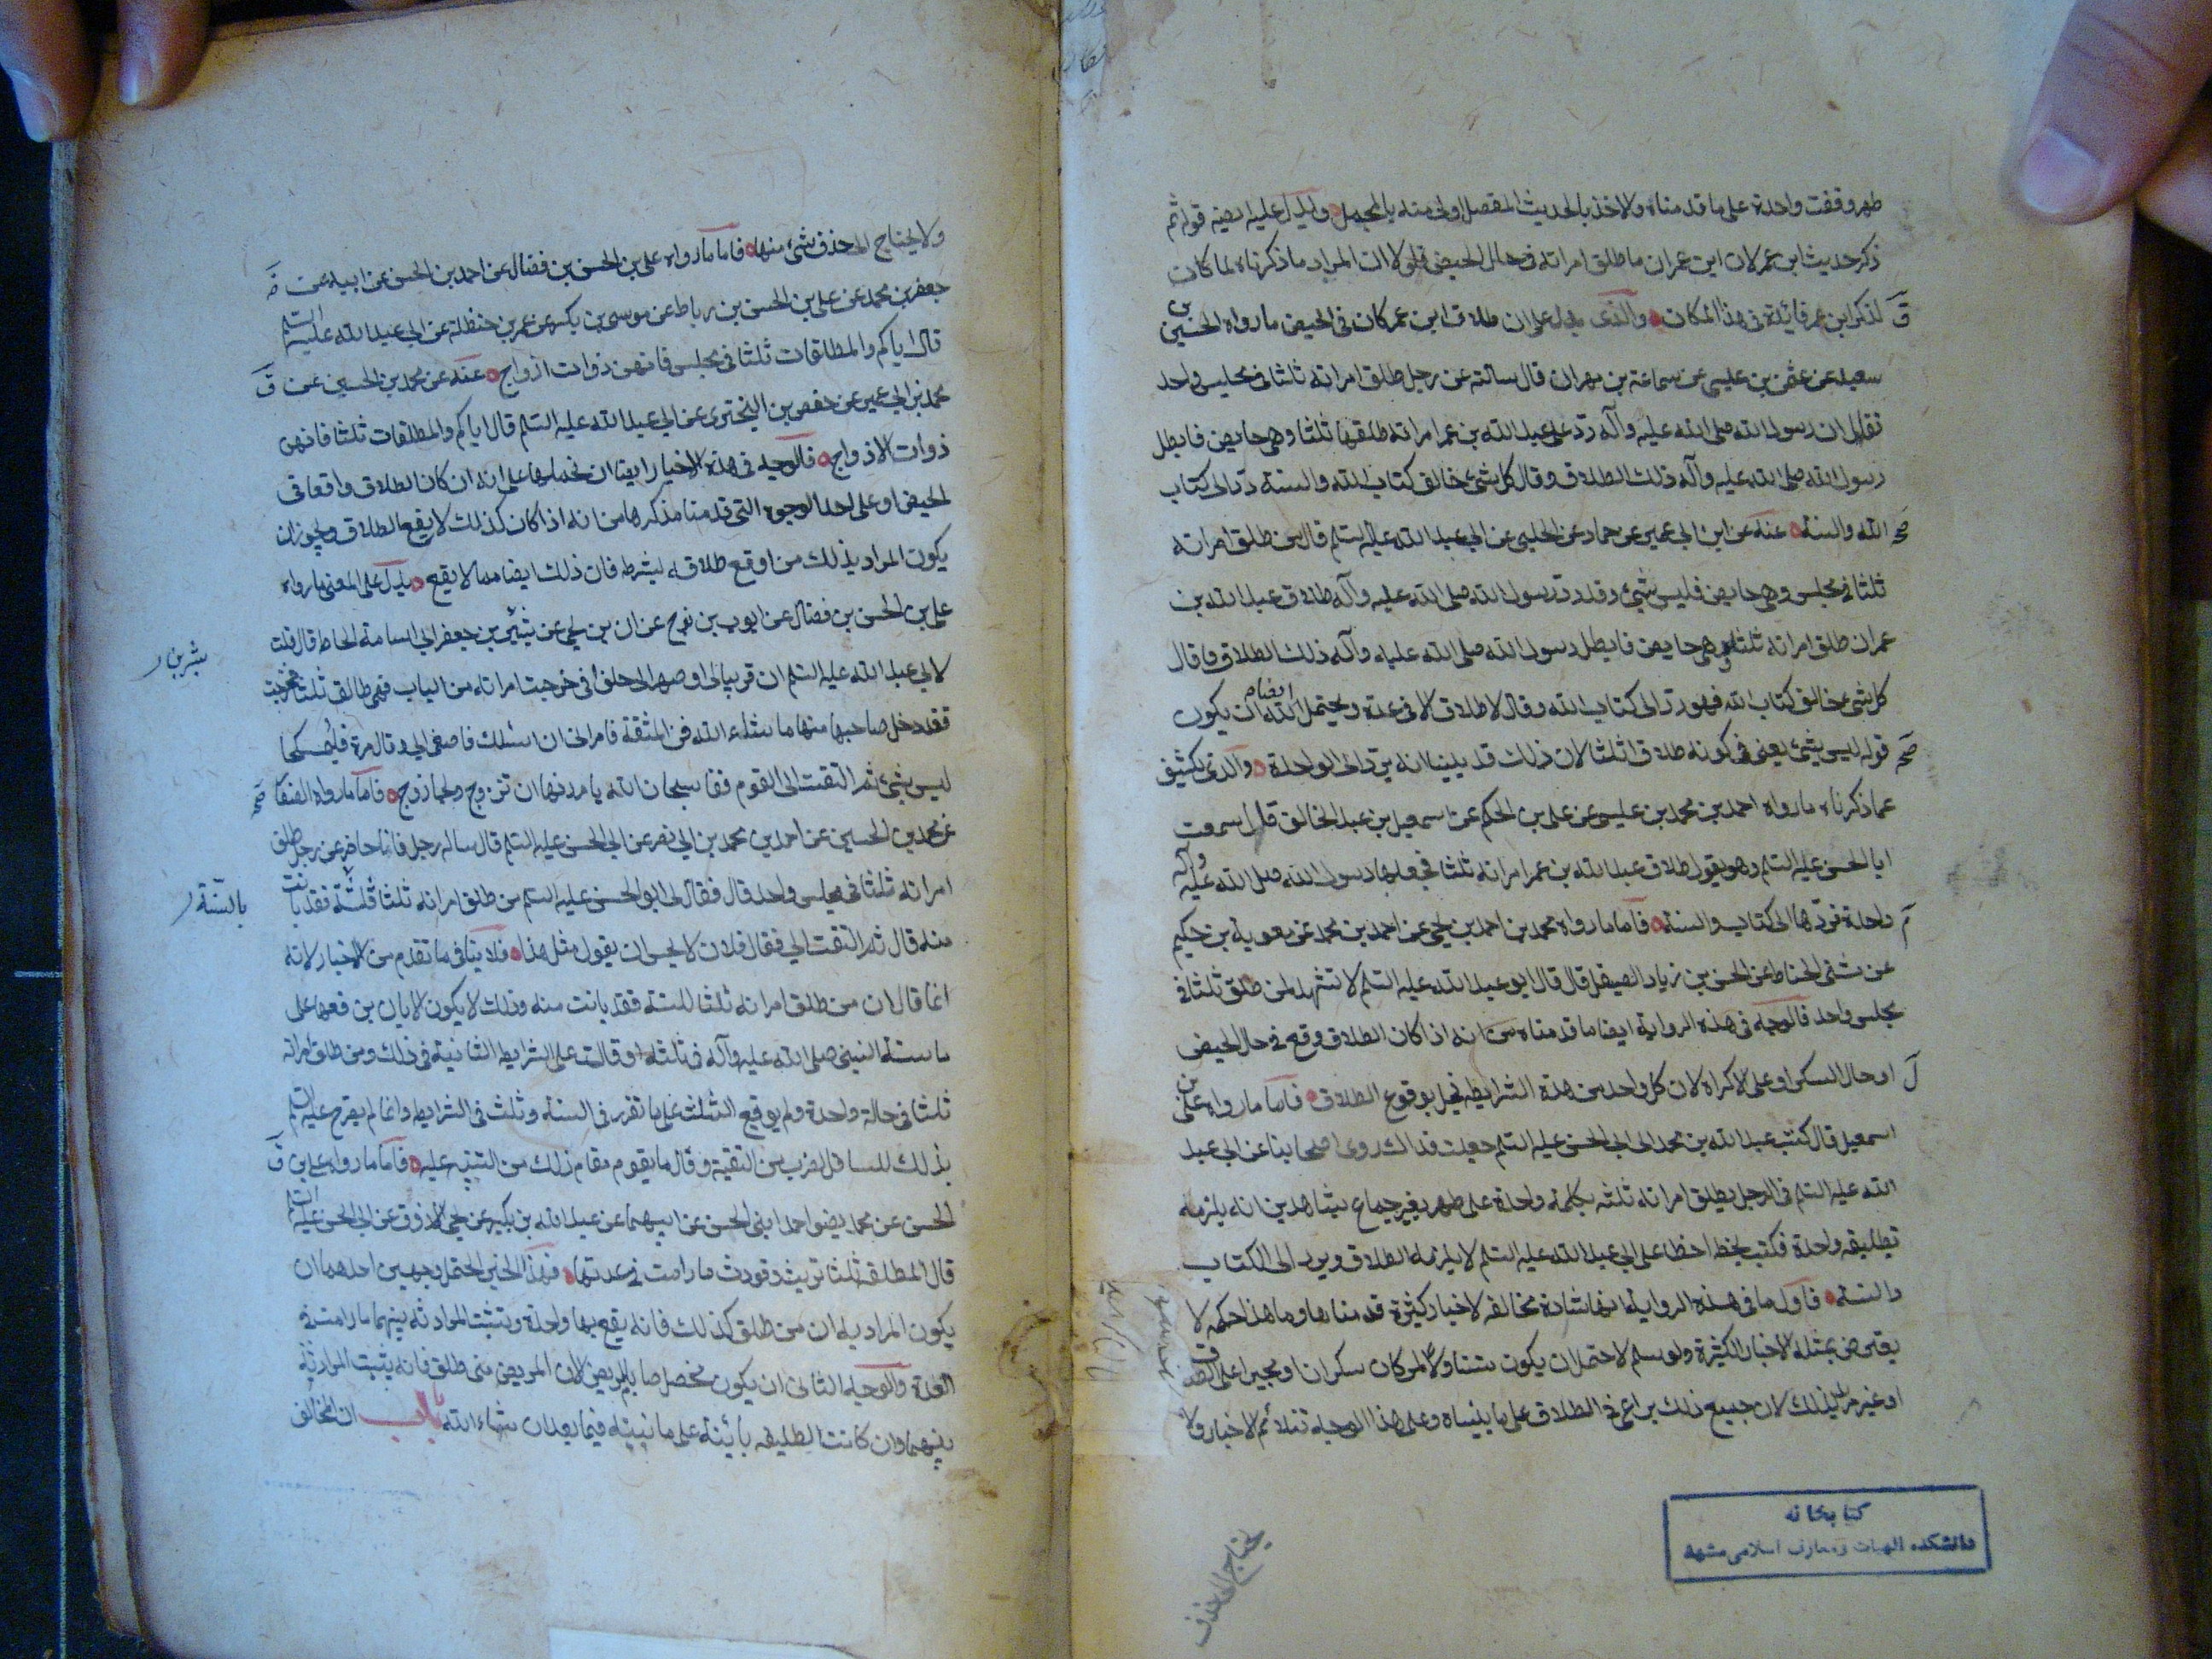 طهر وقفت واحدة على ما قدمناه والاخذ بالحديث المفصل اولى منه بالمجمل ويدل عليه ايضا قوله ثم
ذكر حديث ابن عمر لان ابن عمر ان ما طلق امراته في حال الحيض فلولا ان المراد ما ذكرناه لما كان
لذكر ابن عمر فائدة في هذا المكان والذى يدل على ان طلاق ابن عمر كان في الحيض ما رواه الحسين بن
سعيد عن عثمن بن عليسى عن سماعة بن مهران قال سالته عن رجل طلق امراته ثلثا في مجلس واحد
فقال ان رسول الله صلى الله عليه وآله ردّ على عبد الله بن عمر امراته طلقها ثلثا وهى حايض فابطل
رسول الله صلى الله عليه وآله ذلك الطلاق وقال كل شئ خالف كتاب الله والسنة ردّ الى كتاب
الله والسنة عنه عن ابن ابى عمير عن حماد عن الحلبى عن ابى عبد الله عليه السلم قال من طلق امراته
ثلثا في مجلس وهى حايض فليس بشئ وقد رد رسول الله صلى الله عليه وآله طلاق عبد الله بن
عمر ان طلق امراته ثلثا وهى حايض فابطل رسول الله صلى الله عليه وآله ذلك الطلاق وقال
كل شئ خالف كتاب الله فهو ردّ الى كتاب الله وقال لا طلاق الا في عدة ويحتمل ايضا ان يكون
قوله ليس بشئ يعنى في كونه طلاقا ثلثا لان ذلك قد بينا انه يردّ الى الواحدة والذى يكشف
عما ذكرناه ما رواه احمد بن محمد بن عليسى عن على بن الحكم عن اسمعيل بن عبد الخالق قال سمعت
ابا الحسن عليه السلم وهو يقول طلاق عبد الله بن عمر امراته ثلثا فجعلها رسول الله صلى الله عليه وآله
واحدة فردّها الى كتاب والسنة فاما ما رواه محمد بن احمد بن يحيى عن احمد بن محمد عن معوية بن حكيم
عن مثنى الحناط عن الحسن بن زياد الصيقل قال قال ابو عبد الله عليه السلم لا تشهد لمن طلق ثلثا في
مجلس واحد فالوجه في هذه الرواية ايضا ما قدمناه من انه اذا كان الطلاق وقع في حال الحيض
او حال السكر او على الاكراه لان كل واحد من هذه الشرايط يخل بوقوع الطلاق فاما ما رواه على بن
اسمعيل قال كتب عبد الله بن محمد الى ابى الحسن عليه السلم جعلت فداك روى اصحابنا عن ابى عبد
الله عليه السلم في الرجل يطلق امراته ثلثه بكلمة واحدة على طهر بغير جماع بشاهدين انه يلزمه
تطليقه واحدة فكتب بخطه اخطا على ابى عبد الله عليه السلم لا يلزمه الطلاق ويرد الى الكتاب
والسنة فاول ما في هذه الرواية انها شاذة مخالفه لاخبار كثيرة قدمناها وما هذا حكمه لا
يعترض بمثله الاخبار الكثيرة ولو سلم لاحتمل ان يكون متناولا لمن كان سكران او مجبرا على
او غير مريد لذلك لان جميع ذلك يراعى في الطلاق على ما بيناه وعلى هذا الوجه تتلائم الاخبار ولا
يحتاج الى حذف
كتابخانه
دانشكده الهيات ومعارف اسلامى مشهد
ولا يحتاج الى حذف شئ منها فاما ما رواه على بن الحسن بن فضال عن احمد بن الحسن عن ابيه عن
جعفر بن محمد عن على بن الحسن بن رباط عن موسى بن بكر عن عمر بن حنظلة عن ابى عبد الله عليه السلم
قال اياكم والمطلقات ثلثا في مجلس فانهن ذوات ازواج عنه عن محمد بن الحسين عن
محمد بن ابى عمير عن حفص بن البخترى عن ابى عبد الله عليه السلم قال اياكم والمطلقات ثلثا فانهن
ذوات الازواج فالوجه في هذه الاخبار ايضا ان نحملها على انه ان كان الطلاق واقعا في
الحيض او على احد الوجوه التى قدمنا ذكرها من انه اذا كان كذلك لا يقع الطلاق ويجوز ان
يكون المراد بذلك من اوقع طلاقه بشرط فان ذلك ايضا مما لا يقع يدل على المعنى ما رواه
على بن الحسن بن فضال عن ايوب بن نوح عن بن يحيى عن بشر بن جعفر ابى اسامة الحاط قال قلت
لابى عبد الله عليه السلم ان قريبا لى او صهرا لى حلف ان خرجت امراته من الباب فهى طالق ثلثا فخرجت
فقد دخل صاحبها منها ما شاء الله من المشقة فامرانى ان اسئلك فاصغى الى وقال مره فليمسكها
ليس بشئ ثم التفت الى القوم فقا سبحان الله يامرونها ان تزوج ولها زوج فاما ما رواه الصفا
عن محمد بن الحسين عن احمد بن محمد بن ابى نصر عن ابى الحسن عليه السلم قال ساله رجل وانا حاضر عن رجل طلق
امراته ثلثا في مجلس واحد قال فقال لى ابو الحسن عليه السلم من طلق امراته ثلثا فقد بانت
منه قال ثم التفت الى فقال فلان لا يحسن ان يقول مثل هذا فلا ينافى ما تقدم من الاخبار لانه
انما قال ان من طلق امراته ثلثا للسنة فقد بانت منه وذلك لا يكون الا بان يعها على
ما سنه النبى صلى الله عليه وآله في ثلثه اوقات على الشرايط الثانية في ذلك ومن طلق امراته
ثلثا في حالة واحدة ولم يوقع الثلث على ما تقرر في السنة وثلث في الشرايط وانما لم يصرح عليه السلم
بذلك للسائل لضرب من التقية وقال ما يقوم مقام ذلك من التنبيه عليه فاما ما رواه على بن
الحسن عن محمد واحمد ابنى الحسن عن ابيهما عن عبد الله بن بكير عن يحيى الازرق عن ابى الحسن عليه السلم
قال المطلقة ثلثا ترث وتورث ما دامت في عدتها فهذا الخبر يحتمل وجهين احدهما ان
يكون المراد به ان من طلق كذلك فانه يقع بها واحدة ويثبت الموارثه بينهما ما دامت في
العدة والوجه الثانى ان يكون مخصصا بالمريض لان المريض متى طلق فانه يثبت الموارثة
بينهما وان كانت الطليقه بائنة على ما نبينه فيما بعد ان شاء الله باب ان المخالف
بشر بن
بالسنة